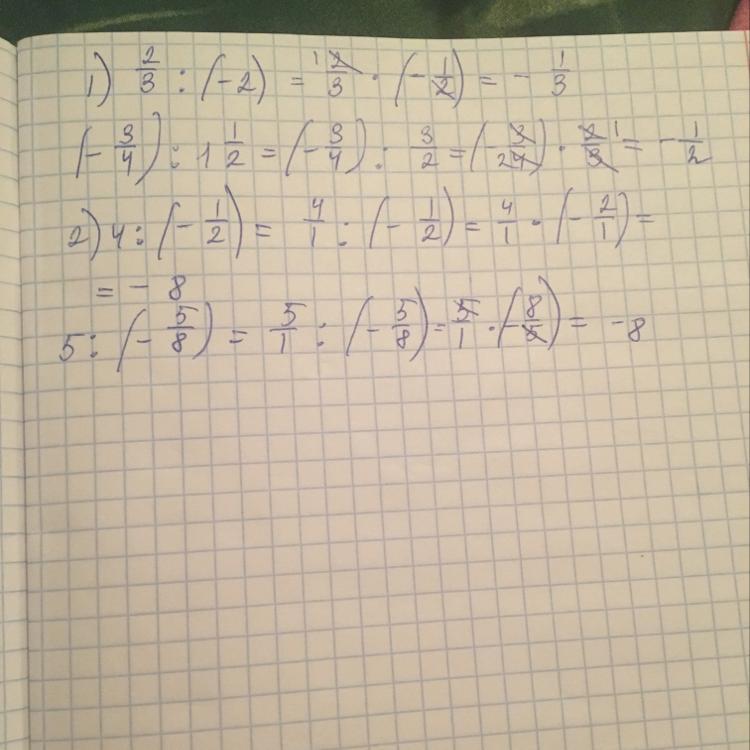 1) 2/3 : (-2) = 2/3 · (-1/2) = - 1/3
(-3/4) : 1 1/2 = (-3/4) : 3/2 = (-3/4) · 2/3 = -1/2
2) 4 : (-1/2) = 4/1 : (-1/2) = 4/1 · (-2/1) =
= - 8
5 : (-5/8) = 5/1 : (-5/8) = 5/1 · (-8/5) = -8